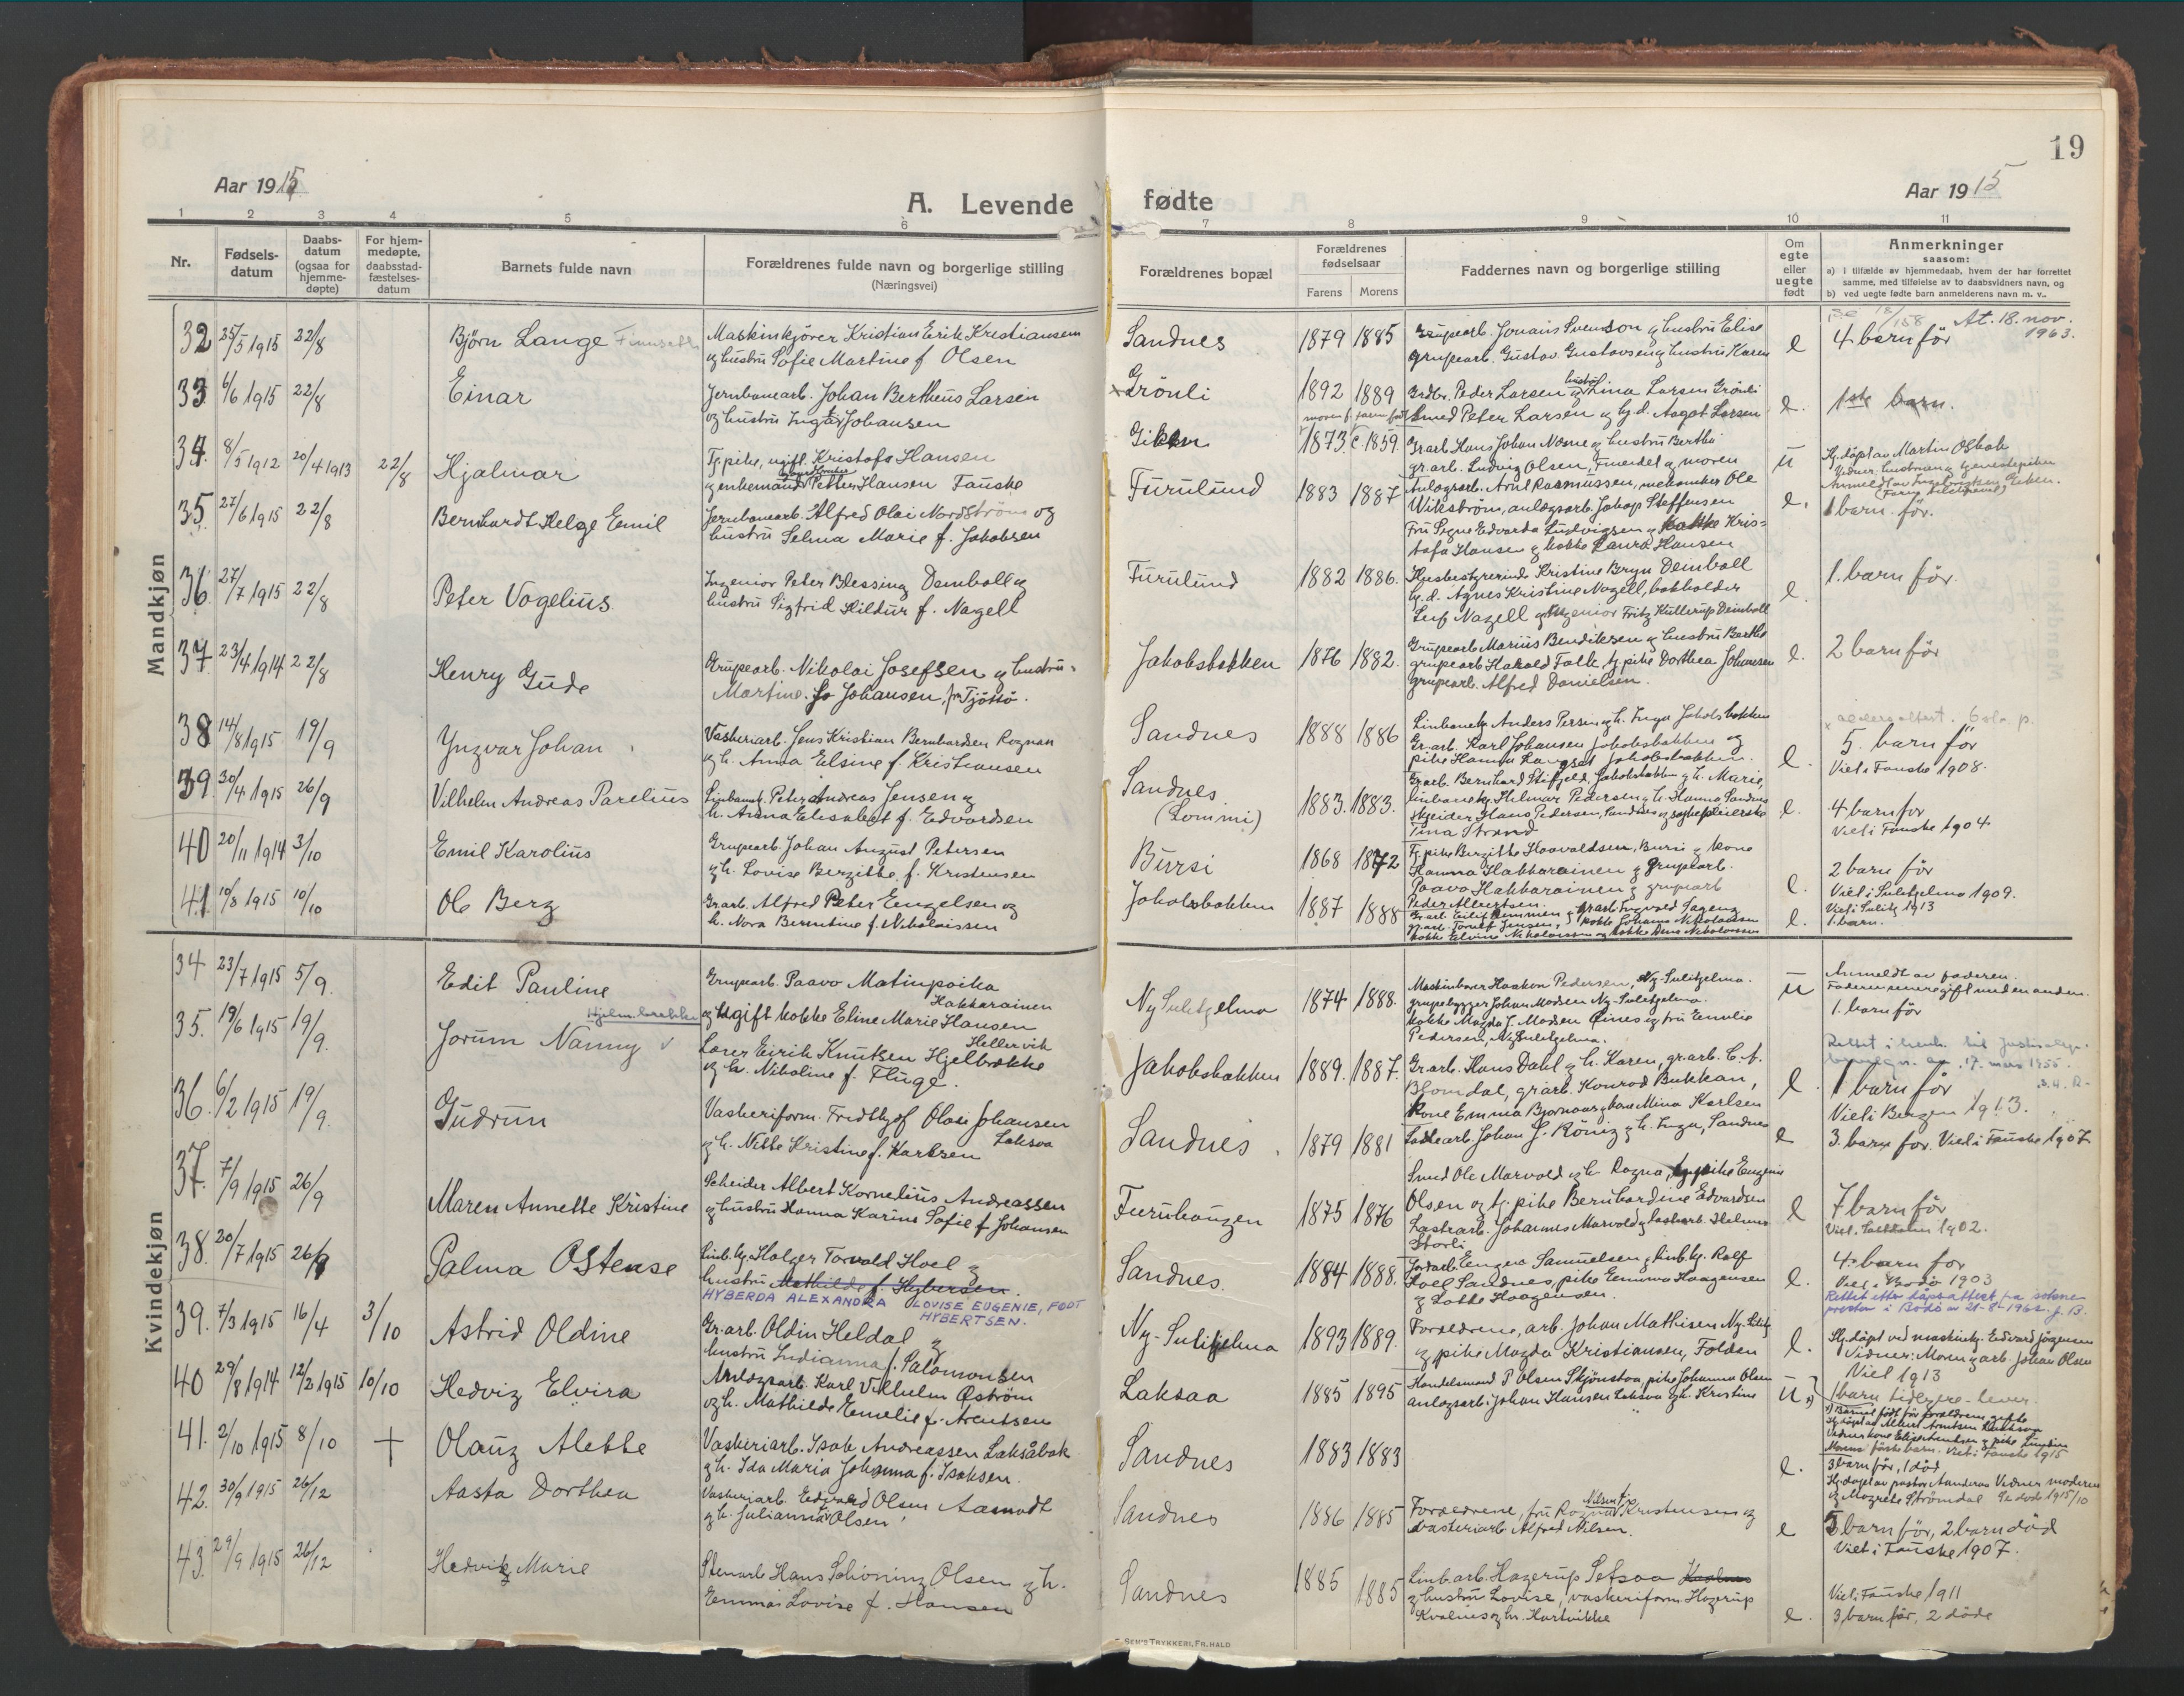 19
Aar 1915
A. Levende
fødte
Aar 1915
1 2 3 4 5 6 7 8 9 10 11
Nr.
Fødsels-
datum
Daabs-
datum
(ogsaa for
hjemme-
døpte)
For hjem-
medøpte,
daabsstad-
fæstelses-
datum
Barnets fulde navn
Forældrenes fulde navn og borgerlige stilling
(Næringsvei)
Forældrenes bopæl
Forældrenes
fødselsaar
Farens Morens
Faddernes navn og borgerlige stilling
Om
egte
eller
uegte
født
Anmerkninger
saasom:
a) i tilfælde av hjemmedaab, hvem der har forrettet
samme, med tilføielse av to daabsvidners navn, og
b) ved uegte fødte barn anmelderens navn m. v..
Mandkjøn
32 25/5 1915 22/8 Bjørn Lange
Maskinkjører Kristian Erik Kristiansen
og hustru Sofie Martine f Olsen
Sandnes 1879 1885
Grubearb. Jonais Svenson og hustru Elise
grupearb. Gustav Gustavsen og hustru Karen
e 4 barn før At. 18. nov.
1963.
33 6/6 1915 22/8 Einar
Jernbanearb. Johan Bertheus Larsen
og hustru Inga f Johansen
Grönli 1892 1889
Grdbr. Peder Larsen og hustru Lina Larsen Grönli
Smed Peter Larsen og tj.d. Aagot Larsen
e. 1ste barn.
34. 8/5 1912 20/4 1913 22/8 Hjalmar
Tj.pike, ugift. Kristofa Hansen
og enkemand Petter Hansen Fauske
Giken 1873. c. 1859.
Gr.arb Hans Johan Næsne og hustru Bertha
gr.arb. Ludvig Olsen, Finneidet og moren
u Hj. døpt av Martin Olsbak
35. 27/6 1915 22/8 Bernhardt Helge Emil
Jernbanearb. Alfred Olai Nordström og
hustru Selma Marie f. Jakobsen
Furulund 1883 1887
Anlægsarb. Arnt Rasmussen, mekaniker Ole
Wikström, anlægsarb. Jakop Steffensen
Fru Signe Edvarda Ludvigsen og kokke Kris-
tofa Hansen og kokke Laura Hansen
e. 1 barn før.
36. 27/7 1915 22/8 Peter Vogelius
Ingeniør Peter Blessing Deinboll og
hustru Sigfrid Hildur f. Nagell
Furulund 1882 1886.
Husbestyrerinde Kristine Bryn Deinboll
tj. d. Agnes Kristine Nagell, bokholder
Leif Nagell og Ingeniør Fritz Kullerup Deinboll
e. 1. barn før.
37 23/4 1914 22/8 Henry Gude
Grupearb. Nikolai Josefsen og hustru
Martine. Johansen, fra Tjöttö.
Jakobsbakken 1876 1882.
Grupearb Marius Bendiksen og hustru Berthe
grupearb Harald Falk tj.pike Dorthea Johansen
grupearb. Alfred Danielsen.
e. 2 barn før
38 14/8 1915 19/9 Yngvar Johan
Vaskeriarb. Jens Kristian Bernhardsen Rognan
og h. Anna Elsine f. Kristiansen
Sandnes 1888 1886
Linbanekj Anders Persen og h. Inga Jakobsbakken
Gr.arb. Karl Johansen Jakobsbakken og
pike Hanna Jakobsbakken.
e. 5. barn før
Viet i Fauske 1908.
39. 30/4 1915 26/9 Vilhelm Andreas Parelius
Linbanekj. Peter Andreas Jensen og
h. Anna Elisabet f. Edvardsen
Sandnes
(Lommi) 1883. 1883.
Grarb. Bernhard Stifjeld, Jakobsbakken og h. Marie,
linbanekj Hilmar Pedersen og h. Hanna Sandnes
skreider Hans Pedersen, Sandnes og sykepleierske
Tina Strand
e. 4 barn før
Viet i Fauske 1904
40 20/11 1914 3/10 Emil Karolius
Grupearb. Johan August Petersen
og h. Lovise Bergithe, f. Kristensen
Bursi 1868 1872
Tj.pike Bergithe Haavaldsen, Bursi og kone
Hanna Hakkarainen og gruparb.
Paavo Hakkarainen og gruparb
Peder Albertsen.
e. 2 barn før
Viet i Sulitjelma 1909.
41. 10/8 1915 10/10 Ole Berg
Grarb. Alfred Peter Engelsen og
h. Nora Berntine f. Nikolaissen
Jakobsbakken 1887 1888
e. Viet i Sulitj. 1913
1. barn.
Kvindekjøn
34 23/7 1915 5/9. Edit Pauline
Grupearb. Paavo Matinpoika
Hakkarainen
og ugift kokke Eline Marie Hansen
Hellervik
Ny Sulitjelma 1874 1888.
Maskinkører Haakon Pedersen, Ny-Sulitjelma.
grupebygger Johan Madsen Ny-Sulitjelma.
kokke Magda J. Madsen Öines og fru Emelie
Pedersen, Ny Sulitjelma.
u Anmeldt av faderen.
1. barn før
35. 19/6 1915 19/9. Jorunn Nanny
Laser Eirik Knutsen Hjelbrekke
og h. Nikoline f. Fluge.
Jakobsbakken 1889. 1887.
Gr.arb. Hans Dahl og h. Karen, gr.arb. C. A.
Blomdal, grarb. Konrad Bukkan,
Kone Emma Bjørnaas og kone Mina Karlsen
e. 1 barn før
Viet i Bergen 1913.
36. 6/2 1915 19/9. Gudrun
Vaskeriform. Fridthjof Olai Johansen
Laksaa
og h. Nette Kristine f. Karlsen
Sandnes 1879 1881
Ladearb. Johan J. Rönig og h. Inga, Sandnes
e 3. barn før. Viet i Fauske 1907
37. 7/9 1915 26/9 Maren Annette Kristine
Scheider Albert Kornelius Andreassen
og hustru Hanna Karine Sofie f. Johansen
Furuhaugen 1875 1876
Smed Ole Marvold og h Ragna, tj.pike Eugenie
Olsen og tj. pike Bernhardine Edvardsen
Lastearb. Johannes Marvold og lastearb. Helmer
Storli
e 7 barn før
1902.
38. 20/7 1915 26/9 Palma Ostense
Linb.kj. Holger Torvald Hoel og
hustru Mathilde f. Hybersen.
HYBERDA ALEXANDRA LOVISE EUGENIE, FØDT
HYBERTSEN.
Sandnes. 1884 1888.
Jordarb. Eugen Samuelsen og linb.kj. Rolf
Hoel Sandnes, pike Emma Haagensen
og Lotte Haagensen.
e. 4. barn før
Viet i Bodø 1903
Rettet efter dåpsattest fra sokne-
presten i Bodö av 21-8-1962. J. B.
39. 7/3 1915 16/4 3/10 Astrid Oldine
Gr.arb. Oldin Heldal og
hustru Indianna f. Salomonsen
Ny-Sulitjelma 1893 1889.
Foreldrene, arb. Johan Mathisen Ny-Sulitj.
og pike Magda Kristiansen, Folden
e. Hj.døpt ved maskinkj. Edvard Jörgensen
Vidner: Moren og arb. Johan Olsen
Viet 1913
40 29/8 1914 12/2 1915 10/10 Hedvig Elvira
Anlægsarb. Karl Vilhelm Öström
og h. Mathilde Emelie f. Arentsen
Laksaa 1885 1895
Handelsmand P Olsen Skjönstaa, pike Johanna Olsen
anlægsarb. Johan Hansen Laksaa og h. Kristine
u 1 barn tidligere - lever.
41. 2/10 1915 8/10 † Olaug Alette
Vaskeriarb. Isak Andreassen Laksåbak
og h. Ida Maria Johanna f. Isaksen.
Sandnes 1883 1883
e. 3 barn før, 1 død
42. 30/9 1915 26/12 Aasta Dorthea
Vaskeriarb. Edvard Olsen Aamodt
og h. Julianna f Olsen
Sandnes 1886 1885
Foreldrene, fru Ragna Nilsen f. Kristensen og
vaskeriarb Alfred Nilsen.
e 5 barn før, 2 barn död
Viet i Fauske 1907.
43. 29/9 1915 26/12 Hedvig Marie
Stenarb Hans Schöning Olsen og h.
Emma Lovise f. Hansen
Sandnes 1885 1885
Linb.arb. Hagerup Setsaa
og hustru Lovise, vaskeriform. Hagerup
Kvalnes og h. Hartvikke
e. Viet i Fauske 1911
3 barn før, 2 döde
SEN'S TRYKKERI, FR. HALD